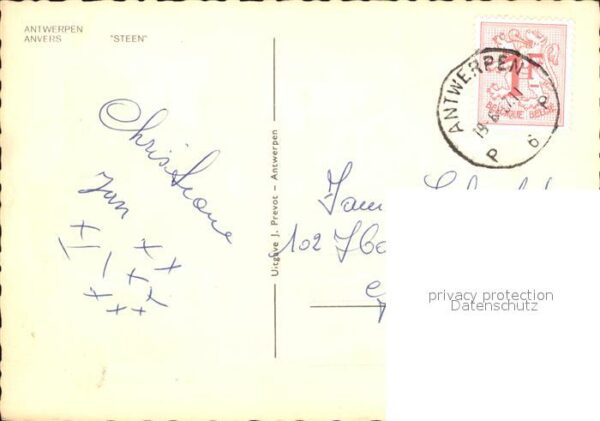 ANTWERPEN
ANVERS "STEEN"
Christiane
Jan
Uitgave J. Prevot - Antwerpen
ANTWERPEN
P 6 P
1F
BELGIQUE BELGIE
102
privacy protection
Datenschutz